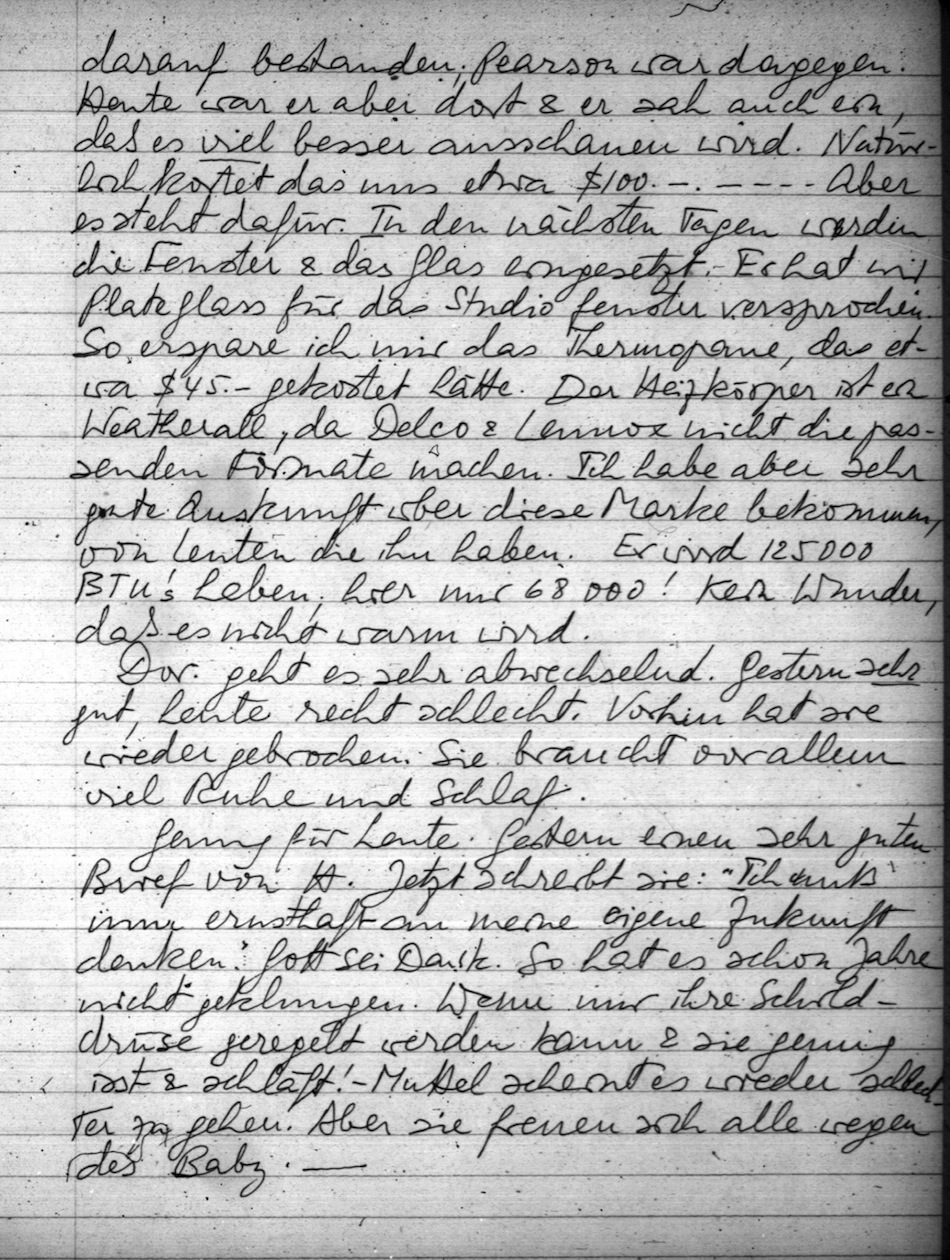 darauf bestanden; Pearson war dagegen.
Heute war er aber dort & er sah auch ein,
daß es viel besser ausschauen wird. Natür-
lich kostet das uns etwa $100.-.---- Aber
es steht dafür. In den nächsten Tagen werden
die Fenster & das Glas eingesetzt.- Er hat mir
Plateglass für das Studio fenster versprochen.
So erspare ich mir das Thermopane, das et-
wa $45.- gekostet hätte. Der Heizkörper ist ein
Weatherall, da Delco & Lennox nicht die pas-
senden Formate machen. Ich habe aber sehr
gute Auskunft über diese Marke bekommen,
von Leuten die ihn haben. Er wird 125000
BTU's haben, hier nur 68000! Kein Wunder,
daß es nicht warm wird.
Dor. geht es sehr abwechselnd. Gestern sehr
gut, heute recht schlecht. Vorhin hat sie
wieder gebrochen. Sie braucht vor allem
viel Ruhe und Schlaf.
Genug für heute. Gestern einen sehr guten
Brief von H. Jetzt schreibt sie: "Ich muß
nun ernsthaft an meine eigene Zukunft
denken." Gott sei Dank. So hat es schon Jahre
nicht geklungen. Wenn nur ihre Schild-
drüse geregelt werden kann & sie genug
isst & schläft!- Muttel scheint es wieder schlech-
ter zu gehen. Aber sie freuen sich alle wegen
des Baby. —